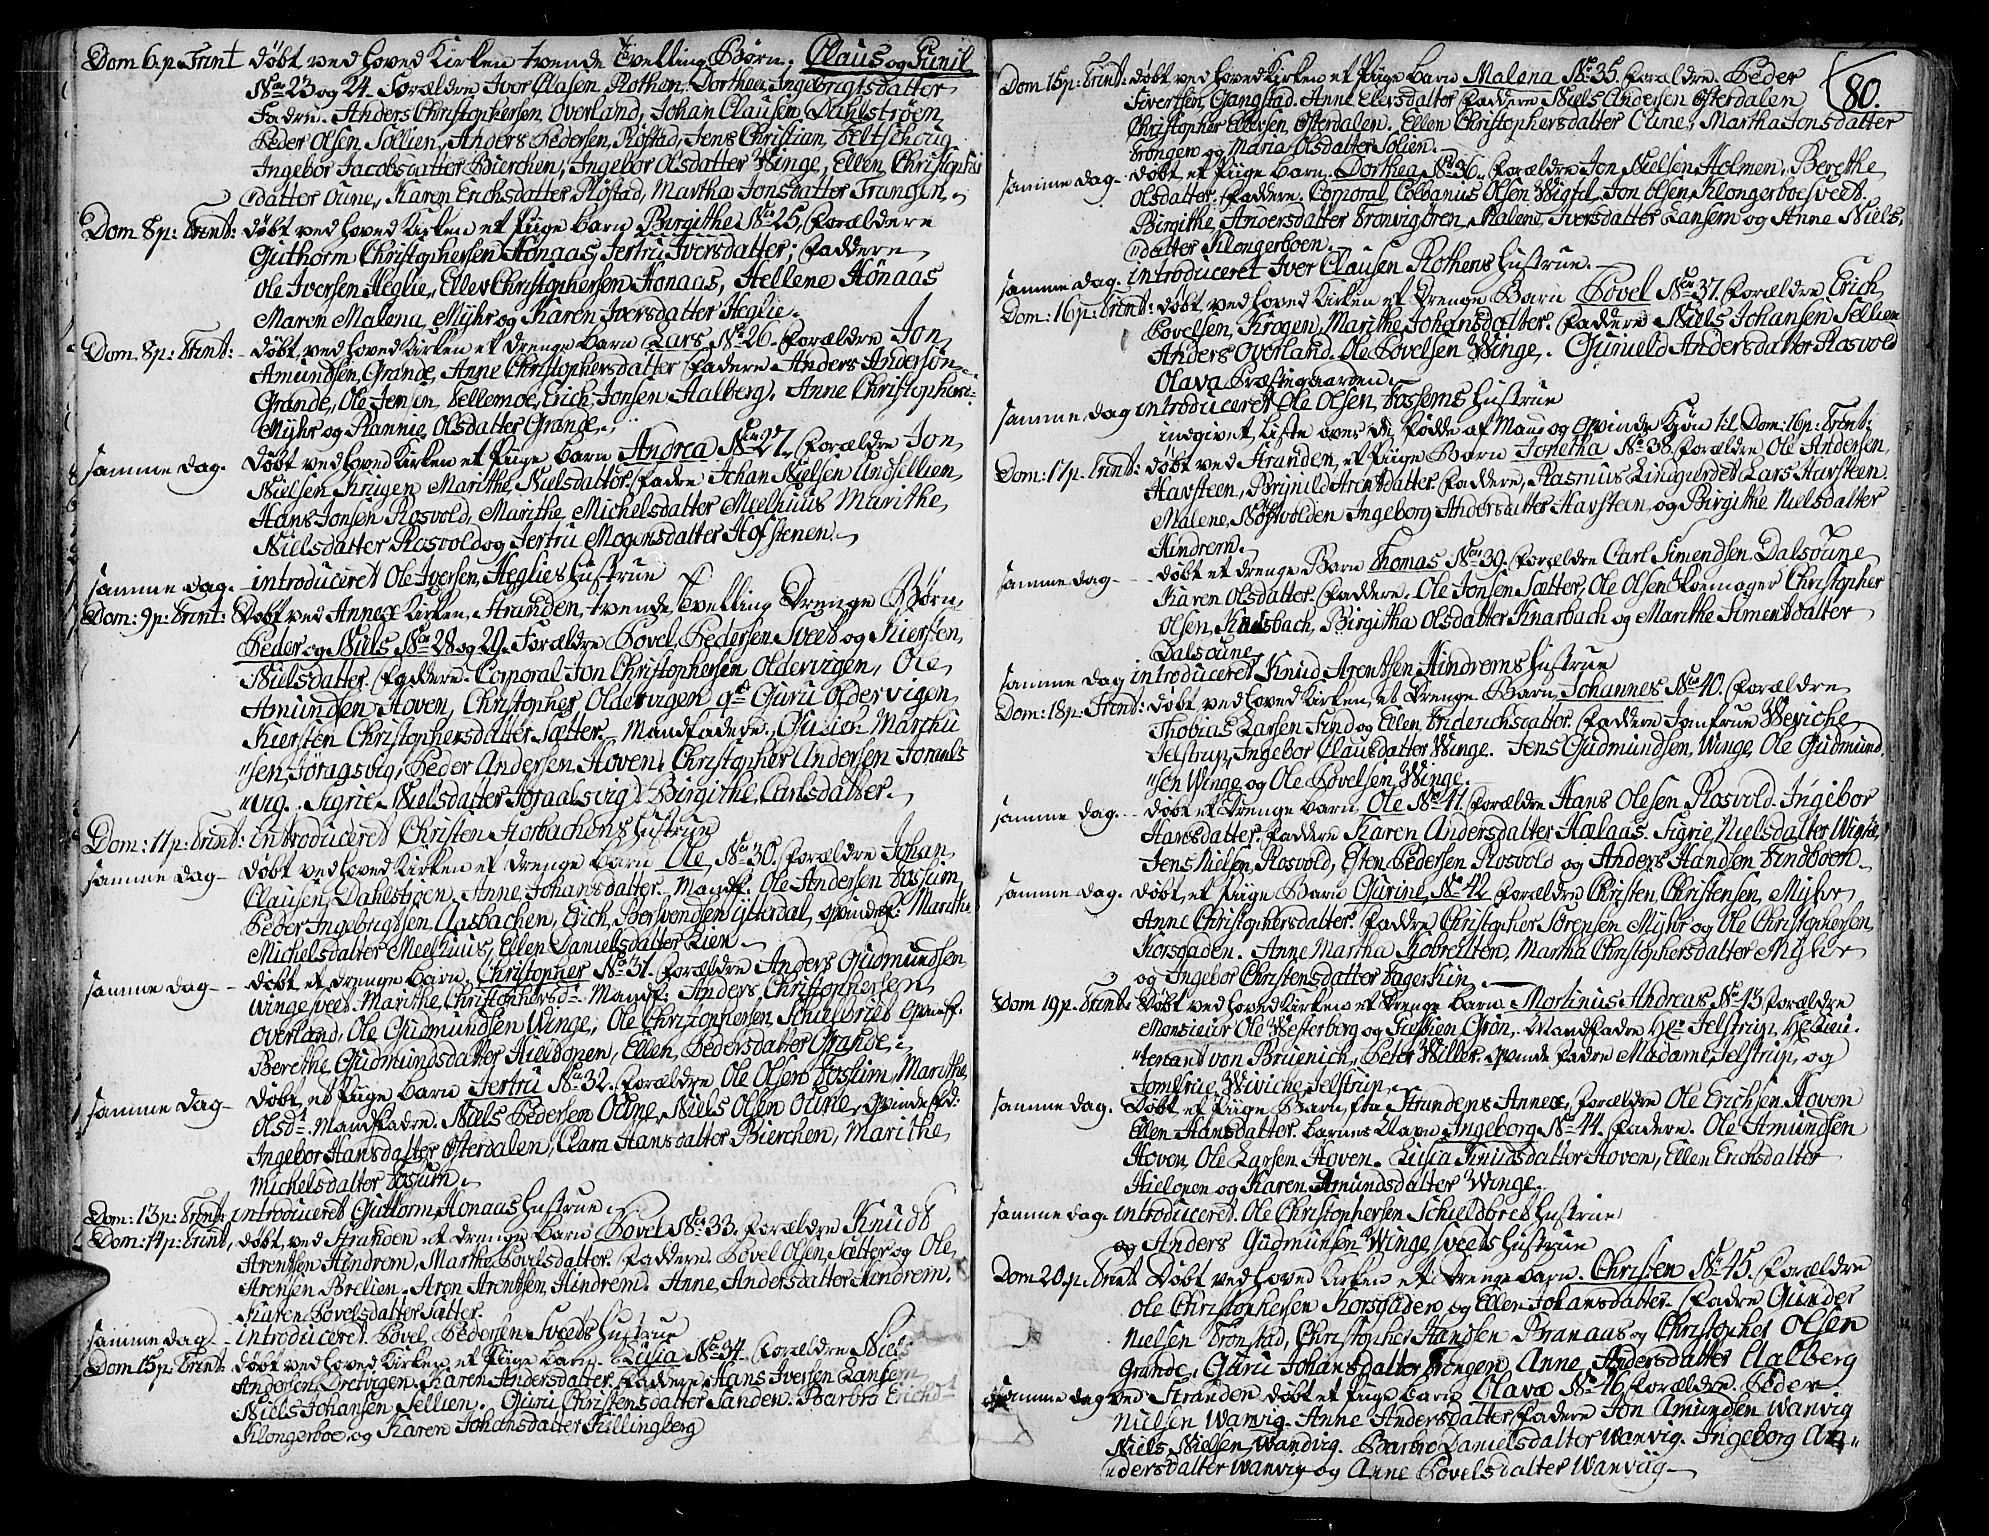 Dom 6. p. Trint døbt ved Hoved Kirken tvende Tvelling Børn. Claus og Gunil
No 23 og 24. Forældre Iver Olsen Rothen. Dorthea Ingebrigtsdatter
Fadre. Anders Christophersen Overland, Johan Clausen Dahlstrøen
Peder Olsen Sollien, Anders Pedersen Røstad, Jens Christian
Ingebor Jacobsdatter Bierchen, Ingebor Olsdatter Winge, Ellen Christophers
datter Oune, Karen Erichsdatter Røstad, Martha Jonsdatter Trangen.
Dom 8 p: Trint: døbt ved Hoved Kirken et Piige Barn Birgithe No 25, Forældere
Guthorm Christophersen Hønaas, Jertru Iversdatter; Faddere
Ole Iversen Heglie, Ellev Christophersen Hønaas, Hellene Hønaas
Maren Malena Myhr og Karen Iversdatter Heglie.
Dom. 8 p: Trint: døbt ved Hoved Kirken et Drenge Barn Lars No 26. Forældre Jon
Amundsen Grande, Anne Christophersdatter Fadere Anders Andersøn
Grande, Ole Jensen Tellemoe, Erich Jonsen Aalberg. Anne Christophers
Myhr og Rannie Olsdatter Grange.
samme dag. Døbt ved Hoved Kirken et Piige Barn Andrea No 27. Forældre Jon
Nielsen Krigen Marithe Nielsdatter. Fadre Johan Nielsen Undsellien
Hans Jonsen Rosvold, Marithe Michelsdatter Meelhuus Marithe
Nielsdatter Rosvold og Jertru Mogensdatter Hofstenen.
samme dag. introduceret Ole Iversen Heglies Hustrue
Dom: 9 p: Trint: Døbt ved Annex Kirken Stranden, tvende Tvelling Drenge Børn
Peder og Niels No 28 og 29. Forældre Povel Pedersen Sveet og Kiersten
Nielsdatter. Faddere. Corporal Jon Christophersen Oldervigen, Ole
Amundsen Hoven, Christopher Oldervigen qd Guru Oldervigen
Kiersten Christophersdatter Sætter. Mandfadere.
sen, Peder Andersen Hoven. Christopher Andersen
wig. Sigrie Nielsdatter Birgithe Carlsdatter.
Dom: 11 p: Trint: introduceret Christen Korbachens Hustrue
samme dag døbt ved Hoved Kirken et Drenge Barn Ole No 30. Forældre Johan
Clausen Dahlstrøen, Anne Johansdatter. Mandf. Ole Andersen Fossum
Peder Ingebrigtsen Aasbachen, Erich Ytterdal, Qvindef: Marithe
Michelsdatter Meelhuus, Ellen Danielsdatter Lien
samme dag døbt et Drenge Barn Christopher No 31. Forældre Anders Gudmundsen
Winge sveet. Marithe Christophersd. Mandf: Anders Christophersen
Overland, Ole Gudmundsen Winge, Ole Christophersen Schieldbret Qvindf.
Berethe Gudmundsdatter Kielopnen, Ellen Pedersdatter Grande.
samme dag Døbt et Piige Barn Jertru No 32. Forældre Ole Olsen Fossum, Marithe
Olsd. Mandfadre. Niels Pedersen Oune, Niels Olsen Oune, Qvindefad:
Ingebor Hansdatter Østerdalen, Clara Hansdatter Bierchen, Marithe
Michelsdatter Fossum.
Dom: 13 p: Trint: introduceret Guttorm Hønaas Hustrue.
Dom: 14 p: Trint, døbt ved Stranden et Drenge Barn Povel No 33. Forældre Knudt
Arentsen Hindrem, Marthe Povelsdatter. Faddere. Povel Olsen Sætter og Ole
Arensen Brelien. Aron Arentsen Hindrem. Anne Andersdatter Hindrem.
Karen Povelsdatter Sætter.
samme dag introduceret. Povel Pedersen Sveets Hustrue
Dom 15 p: Trint: døbt ved Hoved Kirken et Piige Barn. Lusia No 34. Forældre Niels
Andersen Dretvigen. Karen Andersdatter. Faddere, Hans Iversen Lansem
Niels Johansen Sellien. Guri Christensdatter Sanden. Barbro Erichsd
Klongerboe og Karen Johansdatter Killingberg
80.
Dom 15 p: Trint: døbt ved Hoved Kirken et Piige Barn Malena No 35. Forældre. Peder
Sivertsen Gangstad. Anne Elersdatter Faddere Niels Andersen Østerdalen
Christopher Ellersen Østerdalen. Ellen Christophersdatter Oune, Martha Jonsdatter
Trongen og Maria Olsdatter Solien.
samme dag. døbt et Piige Barn. Dorthea No 36. Forældre Jon Nielsen Holmen, Berethe
Olsdatter. Faddere. Corporal Colbanius Olsen Wigtel, Jon Olsen Klongerboe sveet.
Birgithe Andersdatter Tronvigøren, Malene Iversdatter Lansem og Anne Niels
datter Klongerboen.
samme dag. introduceret Iver Clausen Rothens Hustrue.
Dom: 16 p: Trint: døbt ved Hoved Kirken et Drenge Barn Povel No 37. Forældre Erich
Povelsen Krogen Marithe Johansdatter. Faddere Niels Johansen Sellien
Anders Overland. Ole Povelsen Winge. Gunild Andersdatter Rosvold
Olava Præstegaarden.
samme dag introduceret Ole Olsen Fossems Hustrue
indgivet Liste over de fødde af Mand og Qvinde Kiøn til Dom: 16 p: Trint:
Dom: 17 p. Trint: døbt ved Stranden, et Piige Barn Jonetha No 38. Forældre Ole Andersen
Havsteen, Brynild Arentsdatter. Faddere, Rasmus Lindgierdet Lars Havsteen.
Malene Nøstvolden Ingeborg Andersdatter Havsteen og Birgithe Nielsdatter
Hindrem.
samme dag døbt et Drenge Barn Thomas No 39. Forældre Carl Simendsen Dalsoune
Karen Olsdatter. Faddere. Ole Jonsen Sætter, Ole Olsen Skoemager Christopher
Olsen Birgitha Olsdatter Knarbach og Marithe Simensdatter
Dalsoune
samme dag introduceret Knud Arentsen Hindrems Hustrue
Dom: 18 p: Trint: døbt ved Hoved Kirken, et Drenge Barn, Johannes No 40. Forældre
Thobias Larsen Sund og Ellen Friderichsdatter. Faddere Jomfrue Weviche
Jelstrup, Ingebor Clausdatter Winge. Jens Gudmundsen Winge, Ole Gudmund
sen Winge og Ole Povelsen Winge.
samme dag. døbt et Drenge Barn Ole No 41. Forældre Hans Olesen Rosvold. Ingebor
Hansdatter. Faddere Karen Andersdatter Hælaas. Sigrie Nielsdatter Winge
Jens Nielsen Rosvold, Esten Pedersen Rosvold og Anders Handsen Sundboen
samme dag. døbt, et Piige Barn Gurine, No 42 Forældre Christen Christensen Myhr
Anne Christophersdatter. Faddre Christopher Sørensen Myhr og Ole Christophersen
Korsgaden. Anne Martha Martha Christophersdatter Myhr
og Ingebor Christensdatter
Dom 19 p. Trint: Døbt ved Hoved Kirken et Drenge Barn. Mortinus Andreas No 43 Forældre
Monsieur Ole Westerberg og Grøn. Mandfadre Hr Jelstrup, Hr Lieu
tenand von Bruenich, Peter Willer. Qvinde Fadre Madame Jelstrup, og
Jomfrue Wiviche Jelstrup
samme dag. Døbt et Piige Barn fra Strandens Annex, Forældre Ole Erichsen Hoven
Ellen Hansdatter. Barnes Navn Ingeborg No 44. Fadere. Ole Amundsen
Hoven, Ole Larsen Hoven. Lusia Knudsdatter Hoven, Ellen Erichsdatter
Kielopen og Karen Amundsdatter Winge.
samme dag. introduceret. Ole Christophersen Schieldbret Hustrue
og Anders Gudmunsen Winge sveets Hustrue
Dom 20. p. Trint Døbt ved Hoved Kirken et Drenge Barn. Christen No 45. Forældre
Ole Christophersen Korsgaden og Ellen Johansdatter. Fadre Gunder
Nielsen Tronstad, Christopher Handsen Branaas og Christopher Olsen
Grande, Guru Johansdatter Trongen, Anne Andersdatter Aalberg
samme dag ved Stranden døbt et Piige Barn Olava No 46. Forældre. Peder
Nielsen Wanvig. Anne Andersdatter, Fadere Jon Amunden Wanvig
Niels Nielsen Wandvig. Barbro Danielsdatter Wanvig. Ingeborg An
dersdatter Wanvig og Anne Povelsdatter Wanviig